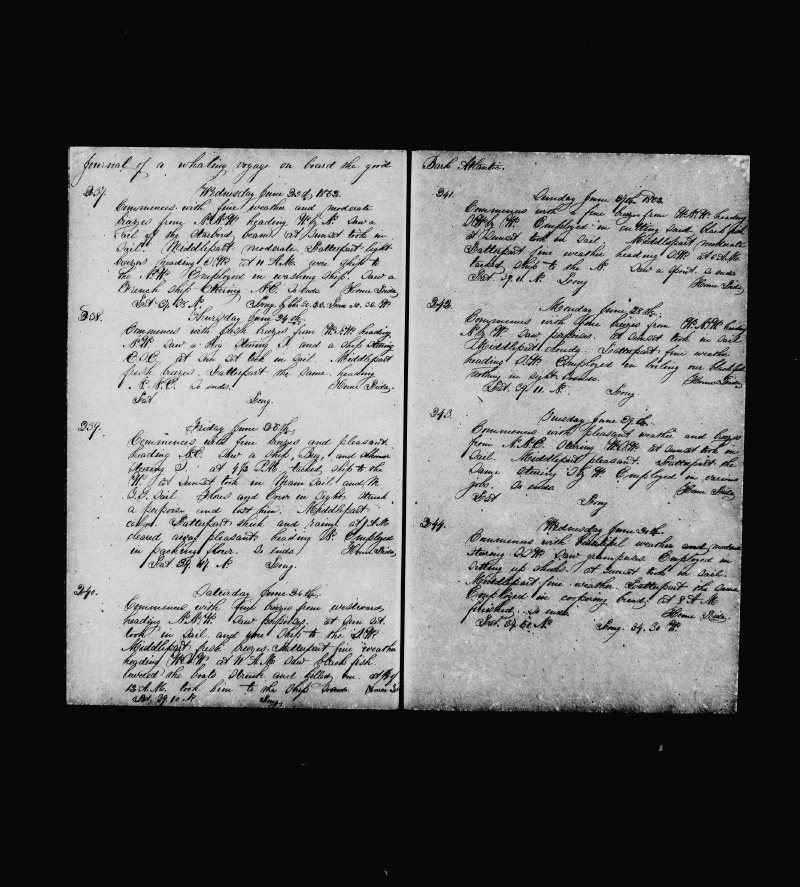 Journal of a whaling voyage on board the good
237. Wednesday June 23d 1852.
Commences with fine weather and moderate
brezes from N.N.W heading W by N. Saw a
sail of the starbord beam at sunset took in
sail. Middlepart moderate. Latterpart light
brezes heading at 11 A.M. wore ship to
the N.W. Employed in washing ship. Saw a
French ship stering N.E. So ends.
Lat. 37. 35 N. Long.
238. Thursday June 24th.
Commences with fresh brezes from heading
N.W. Saw a Brig stering and a ship stering
E.S.E. at sun set took in sail. Middlepart
fresh brezes. Latterpart the same heading
N.N.E. So ends.
Lat. Long.
239. Friday June 25th.
Commences with fine brezes and pleasant
heading N.E. Saw a ship, Brig, and
stering at P.M. tacked ship to the
W. at sunset took in Spain Sail and M.
G. Sail. Flores and Corvo in sight. Struck
a porpoise and lost him. Middlepart
calm. Latterpart thick and rainy. at A.M.
cleared away pleasant heading Employed
in packing flour. So ends
Lat 39. 47 N Long.
240. Saturday June 26th.
Commences with fine brezes from westward
heading N.N.W. Saw porpoises. at sun set
took in sail and wore ship to the S.W.
Middlepart fresh brezes. Latterpart fine weather
heading W.S.W at 11 A.M. saw black fish
lowered the boats struck and killed one. at
12 A.M. took him to the ship. So ends.
Lat. 39. 10 N. Long.
Bark Atlantic.
241. Sunday June 27th 1852.
Commences with fine brezes from W.N.W. heading
Employed in cutting said black fish
at sunset took in sail. Middlepart moderate
Latterpart fine weather heading at A.M.
tacked ship to the N. Saw a spout. So ends
Lat. 39. 11 N. Long
242. Monday June 28th.
Commences with fine brezes from W.N.W. heading
N. by W. Saw porpoises. at sunset took in sail.
Middlepart cloudy. Latterpart fine weather
heading Employed in boiling our blackfish
nothing in sight. So ends.
Lat. 39. 11. N. Long
243. Tuesday June 29th.
Commences with pleasant weather and brezes
from N.N.E. stering W.S.W. at sunset took in
sail. Middlepart pleasant. Latterpart the
same stering by W. Employed in various
jobs. So ends
Lat Long
244. Wednesday June 30th.
Commences with beautiful weather and moderate
stering S.W. Saw grampuses. Employed in
setting up shooks. at sunset took in sail.
Middlepart fine weather. Latterpart the same
Employed in coopering bread. at 8 A.M.
finished. So ends
Lat. 37. 50. N. Long. 34. 30 W.